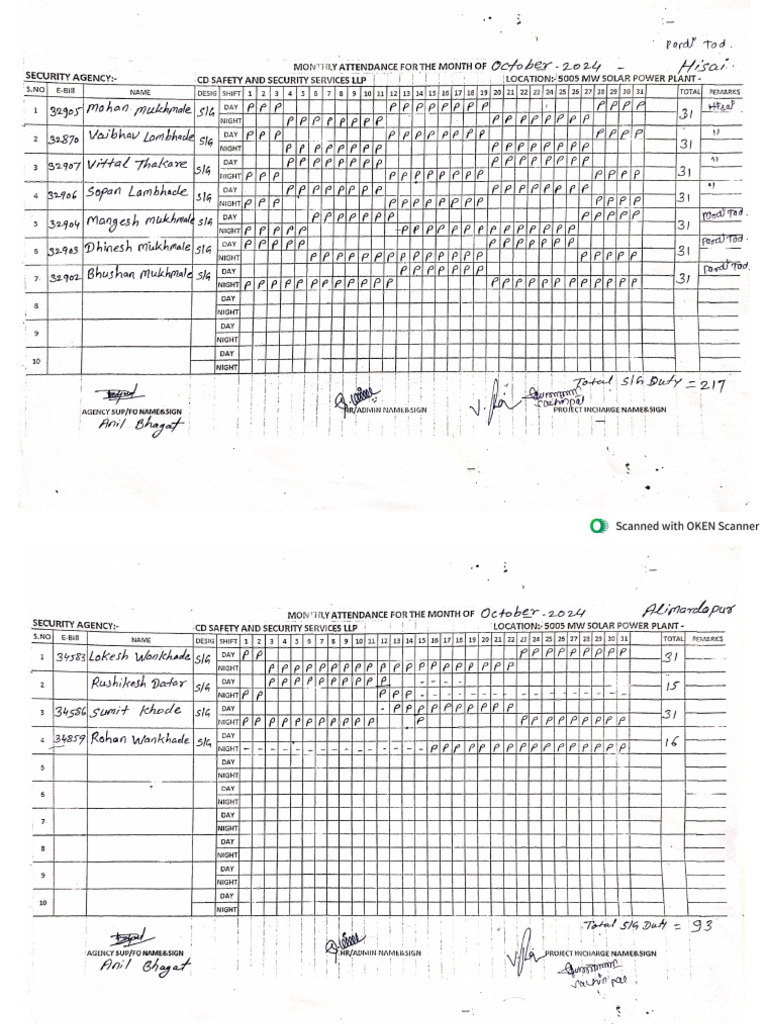 Pardi Tod.
MONTHLY ATTENDANCE FOR THE MONTH OF October-2024 - Hisai
SECURITY AGENCY:- CD SAFETY AND SECURITY SERVICES LLP LOCATION:- 5005 MW SOLAR POWER PLANT -
S.NO E-Bill NAME DESIG SHIFT 1 2 3 4 5 6 7 8 9 10 11 12 13 14 15 16 17 18 19 20 21 22 23 24 25 26 27 28 29 30 31 TOTAL REMARKS
1 32905 Mohan Mukhmale S/G DAY P P P P P P P P P P P P P P P 31 Hisai
NIGHT P P P P P P P P P P P P P P P P
2 32870 Vaibhav Lambhade S/G DAY P P P P P P P P P P P P P P P 31 "
NIGHT P P P P P P P P P P P P P P P P
3 32907 Vittal Thakare S/G DAY P P P P P P P P P P P P P P P P 31 "
NIGHT P P P P P P P P P P P P P P P
4 32906 Sopan Lambhade S/G DAY P P P P P P P P P P P P P P P P 31 "
NIGHT P P P P P P P P P P P P P P P
5 32904 Mangesh Mukhmale S/G DAY P P P P P P P P P P P P 31
NIGHT P P P P P P P P P P P P P P P P P P P
6 32903 Dhinesh Mukhmale S/G DAY P P P P P P P P P P P P 31 Pardi Tod.
NIGHT P P P P P P P P P P P P P P P P P P P
7 32902 Bhushan Mukhmale S/G DAY P P P P P P P 31 Pardi Tod.
NIGHT P P P P P P P P P P P P P P P P P P P P P P P P
8 DAY
NIGHT
9 DAY
NIGHT
10 DAY
NIGHT
Total S/G Duty = 217
AGENCY SUP/FO NAME&SIGN HR/ADMIN NAME&SIGN PROJECT INCHARGE NAME&SIGN
Anil Bhagat
Scanned with OKEN Scanner
MONTHLY ATTENDANCE FOR THE MONTH OF October-2024 Alimardapur
SECURITY AGENCY:- CD SAFETY AND SECURITY SERVICES LLP LOCATION:- 5005 MW SOLAR POWER PLANT -
S.NO E-Bill NAME DESIG SHIFT 1 2 3 4 5 6 7 8 9 10 11 12 13 14 15 16 17 18 19 20 21 22 23 24 25 26 27 28 29 30 31 TOTAL REMARKS
1 34583 Lokesh Wankhade S/G DAY P P P P P P P P P P P 31
NIGHT P P P P P P P P P P P P P P P P P P P P
2 Rushikesh Datar S/G DAY P P P P P P P P P P - - - - 15
NIGHT P P P P P - - - - - - - - - - - - - - - -
3 34586 Sumit Khode S/G DAY - P P P P P P P P P P 31
NIGHT P P P P P P P P P P P P P P P P P P P P P
4 34859 Rohan Wankhade S/G DAY 16
NIGHT - - - - - - - - - - - - - - - P P P P P P P P P P P P P P P P
5 DAY
NIGHT
6 DAY
NIGHT
7 DAY
NIGHT
8 DAY
NIGHT
9 DAY
NIGHT
10 DAY
NIGHT
Total S/G Duty = 93
AGENCY SUP/FO NAME&SIGN HR/ADMIN NAME&SIGN PROJECT INCHARGE NAME&SIGN
Anil Bhagat